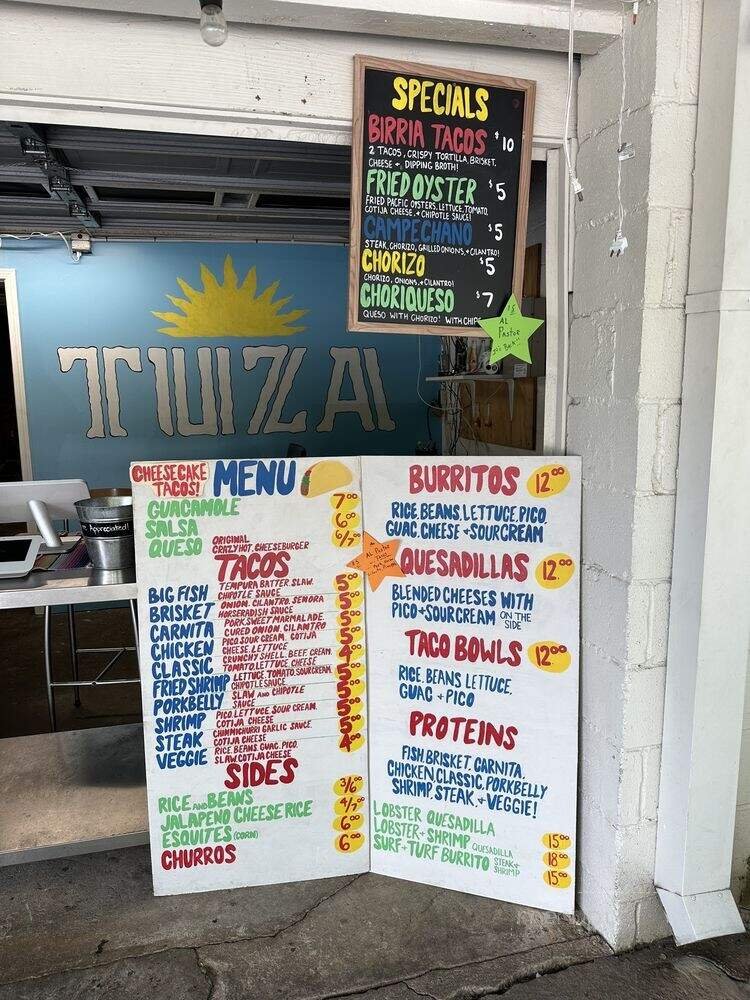 SPECIALS
BIRRIA TACOS $10
2 TACOS, CRISPY TORTILLA, BRISKET,
CHEESE +, DIPPING BROTH!
FRIED OYSTER $5
FRIED PACFIC OYSTERS, LETTUCE, TOMATO,
COTIJA CHEESE, + CHIPOTLE SAUCE!
CAMPECHANO $5
STEAK, CHORIZO, GRILLED ONIONS, + CILANTRO!
CHORIZO $5
CHORIZO, ONIONS, + CILANTRO!
CHORIQUESO $7
QUESO WITH CHORIZO! WITH CHIPS
AL
Pastor
Back"
TUIZA
Appreciated!
CHEESECAKE
TACOS!
MENU
GUACAMOLE 7.00
SALSA 6.00
QUESO ORIGINAL 6/7.00
CRAZY HOT, CHEESEBURGER
TACOS
BIG FISH TEMPURA BATTER, SLAW, 5.00
CHIPOTLE SAUCE
BRISKET ONION, CILANTRO, SENORA 5
HORSERADISH SAUCE
CARNITA PORK, SWEET MARMALADE 5
CURED ONION, CILANTRO
CHICKEN PICO, SOUR CREAM, COTIJA 5
CHEESE, LETTUCE
CLASSIC CRUNCHY SHELL, BEEF, CREAM, 4
TOMATO, LETTUCE CHEESE
FRIED SHRIMP LETTUCE, TOMATO, SOUR CREAM, 5
CHIPOTLE SAUCE
PORKBELLY SLAW AND CHIPOTLE 5
SAUCE
SHRIMP PICO, LETTUCE, SOUR CREAM, 5
COTIJA CHEESE
STEAK CHIMMICHURRI GARLIC SAUCE, 5
COTIJA CHEESE
VEGGIE RICE, BEANS, GUAC, PICO, 4
SLAW, COTIJA CHEESE
SIDES
RICE AND BEANS 3/6.00
JALAPENO CHEESE RICE 4/7.00
ESQUITES (CORN) 6.00
CHURROS 6.00
AL Pastor
BURRITOS 12.00
RICE, BEANS, LETTUCE, PICO,
GUAC, CHEESE + SOUR CREAM
QUESADILLAS 12.00
BLENDED CHEESES WITH
PICO + SOUR CREAM ON THE
SIDE
TACO BOWLS 12.00
RICE, BEANS LETTUCE,
GUAC + PICO
PROTEINS
FISH, BRISKET, CARNITA,
CHICKEN, CLASSIC, PORKBELLY
SHRIMP, STEAK, + VEGGIE!
LOBSTER QUESADILLA 15.00
LOBSTER + SHRIMP QUESADILLA 18.00
SURF + TURF BURRITO STEAK + 15.00
SHRIMP